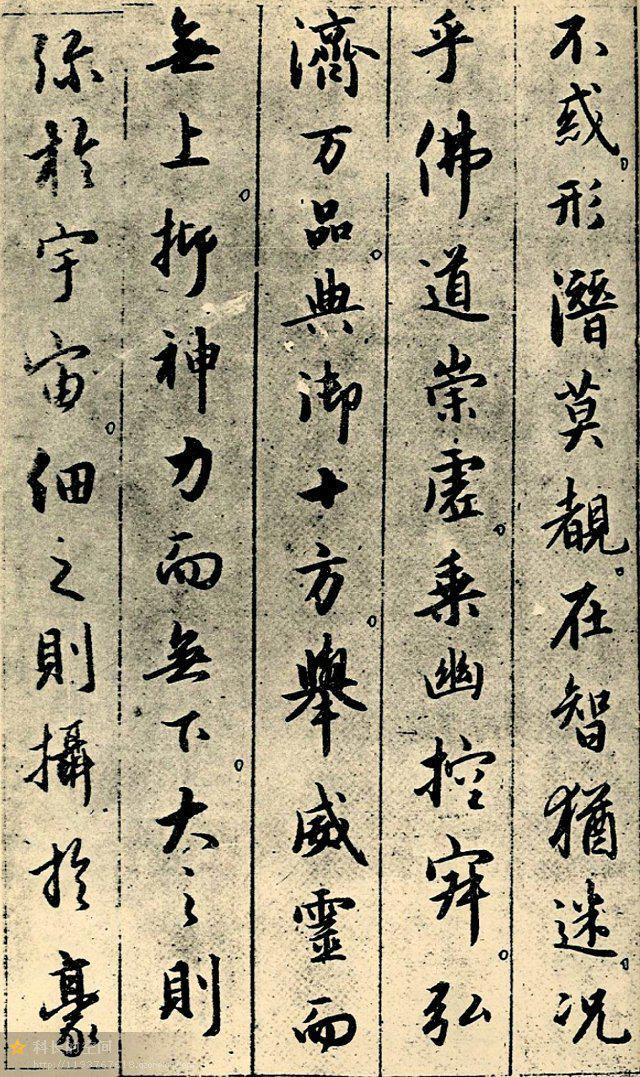 不惑。形潛莫覩。在智猶迷。况
乎佛道崇虛。乘幽控寂。弘
濟万品。典御十方。舉威靈而
無上。抑神力而無下。大之則
弥於宇宙。細之則攝於豪
科长的空间